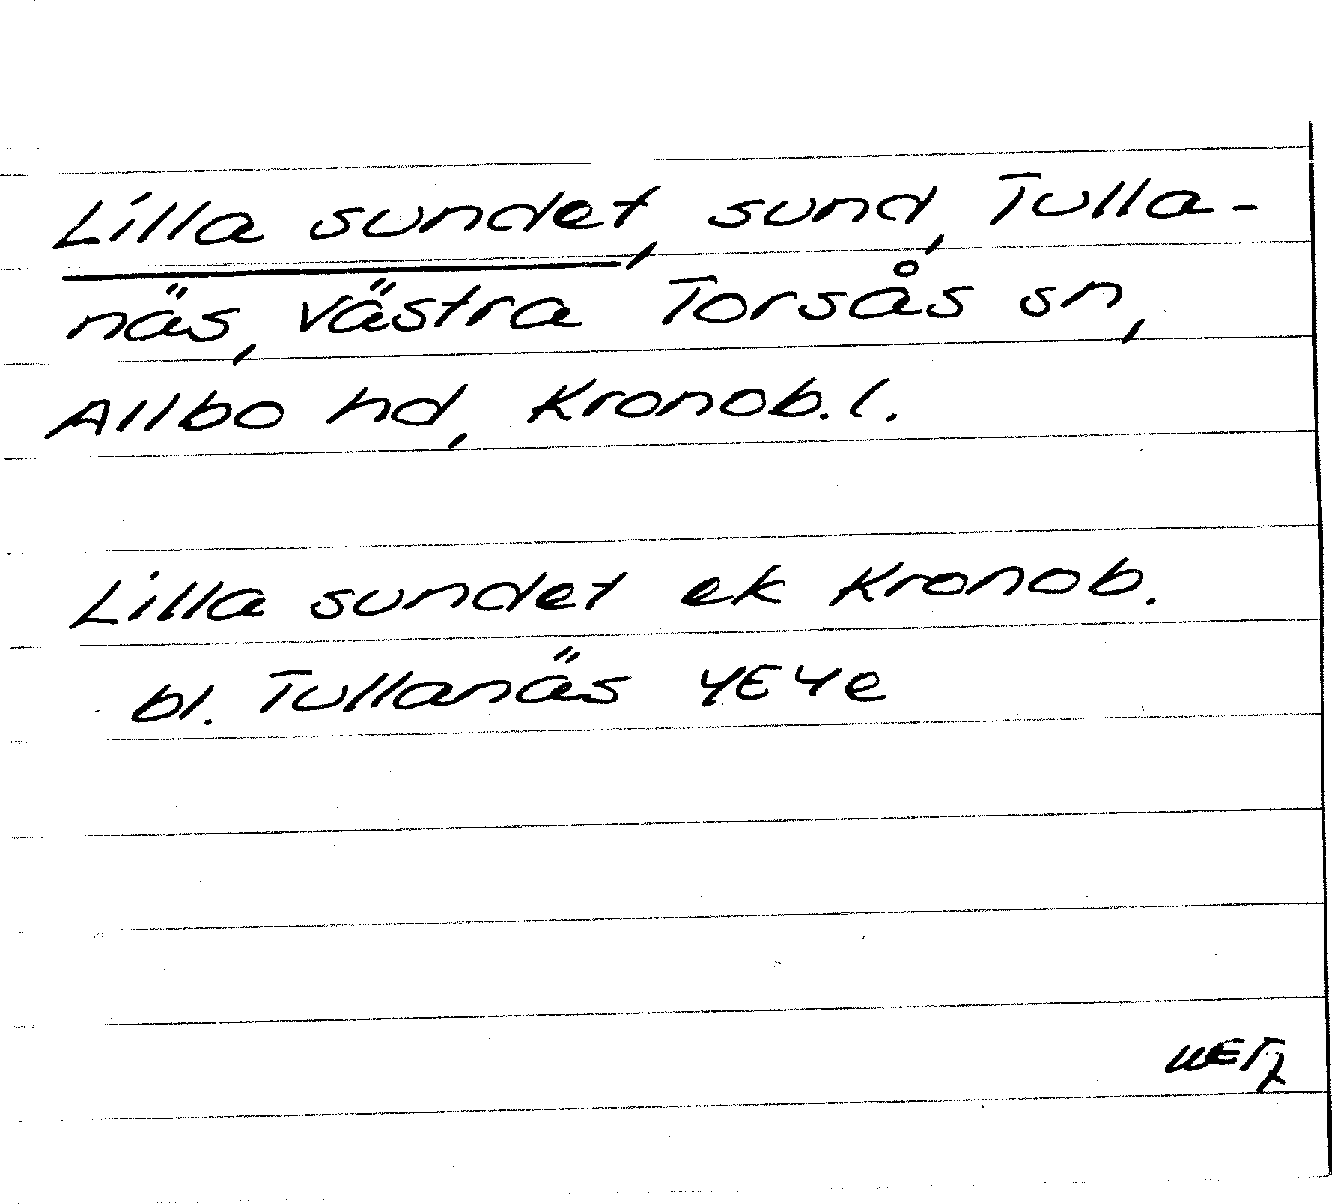 Lilla sundet, sund, Tulla-
näs, västra Torsås sn,
Allbo hd, Kronob. l.
Lilla sundet ek Kronob.
bl. Tullanäs 4E4e